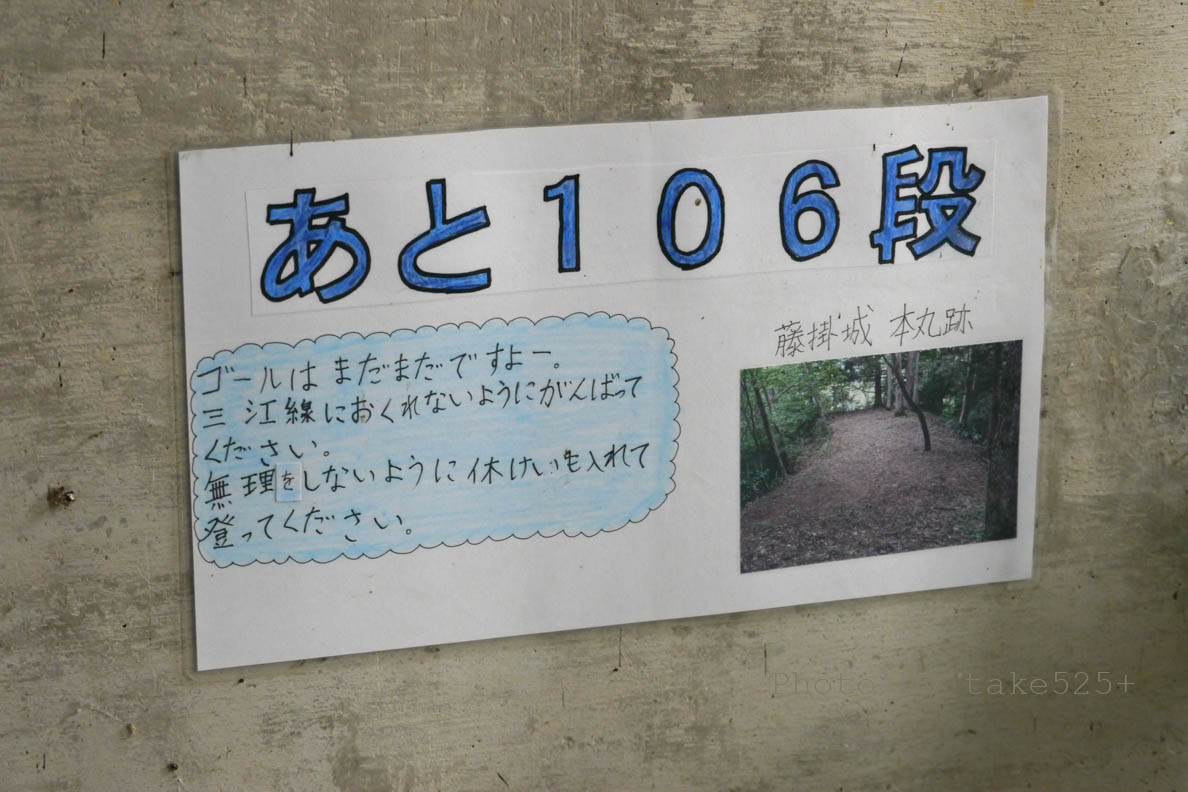 あと106段
藤掛城 本丸跡
ゴールはまだまだですよー。
三江線におくれないようにがんばって
ください。
無理をしないように休けいも入れて
登ってください。
Photo take525+